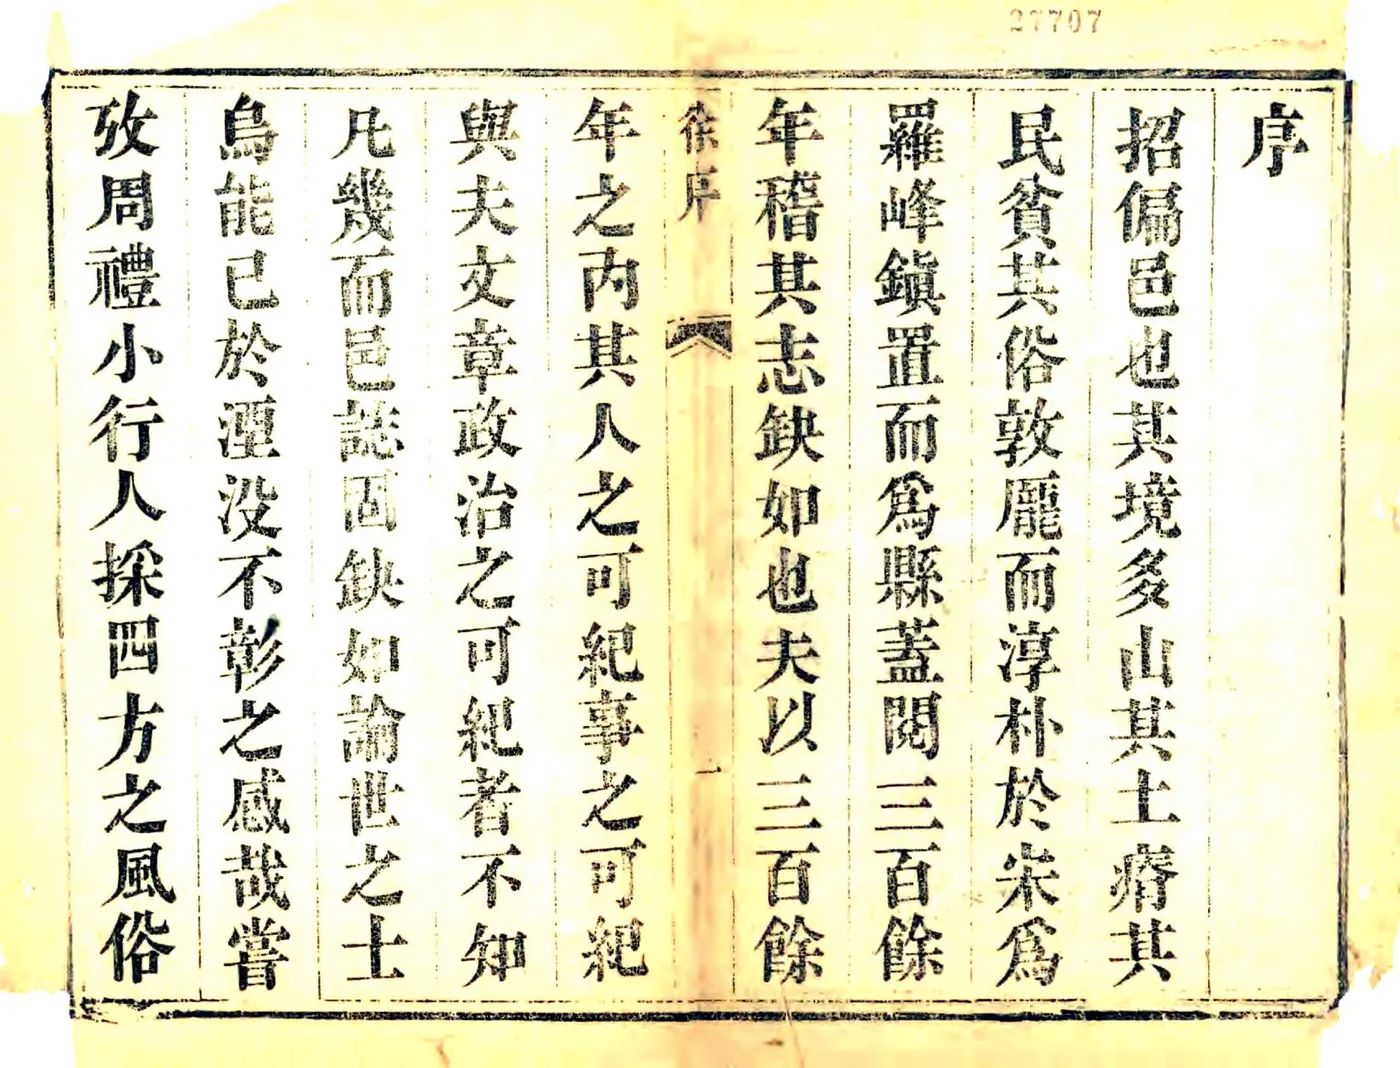 27707
序
招偏邑也其境多山其土瘠其
民貧其俗敦龐而淳朴於宋爲
羅峰鎮置而爲縣蓋閱三百餘
年稽其志缺如也夫以三百餘
徐序
一
年之内其人之可紀事之可紀
與夫文章政治之可紀者不知
凡幾而邑誌固缺如論世之士
烏能已於湮没不彰之感哉嘗
攷周禮小行人採四方之風俗